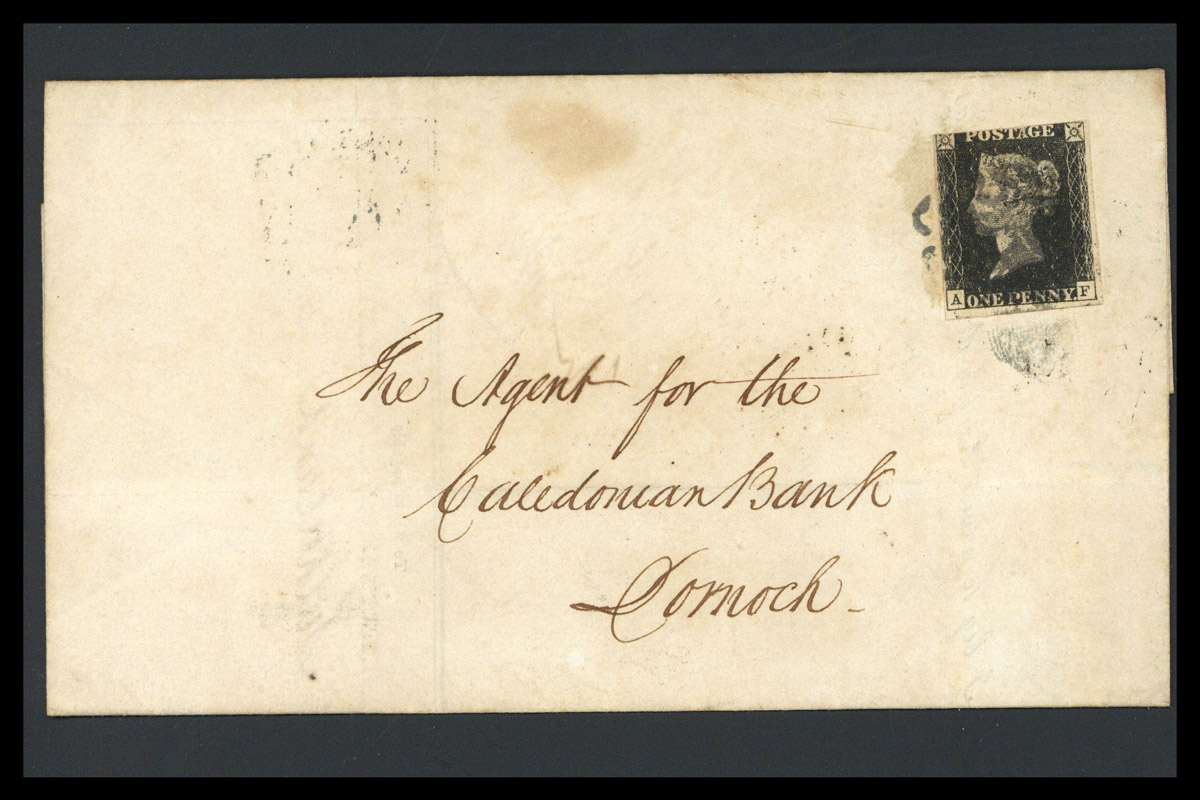 POSTAGE
A ONE PENNY F
The Agent for the
Caledonian Bank
Dornoch